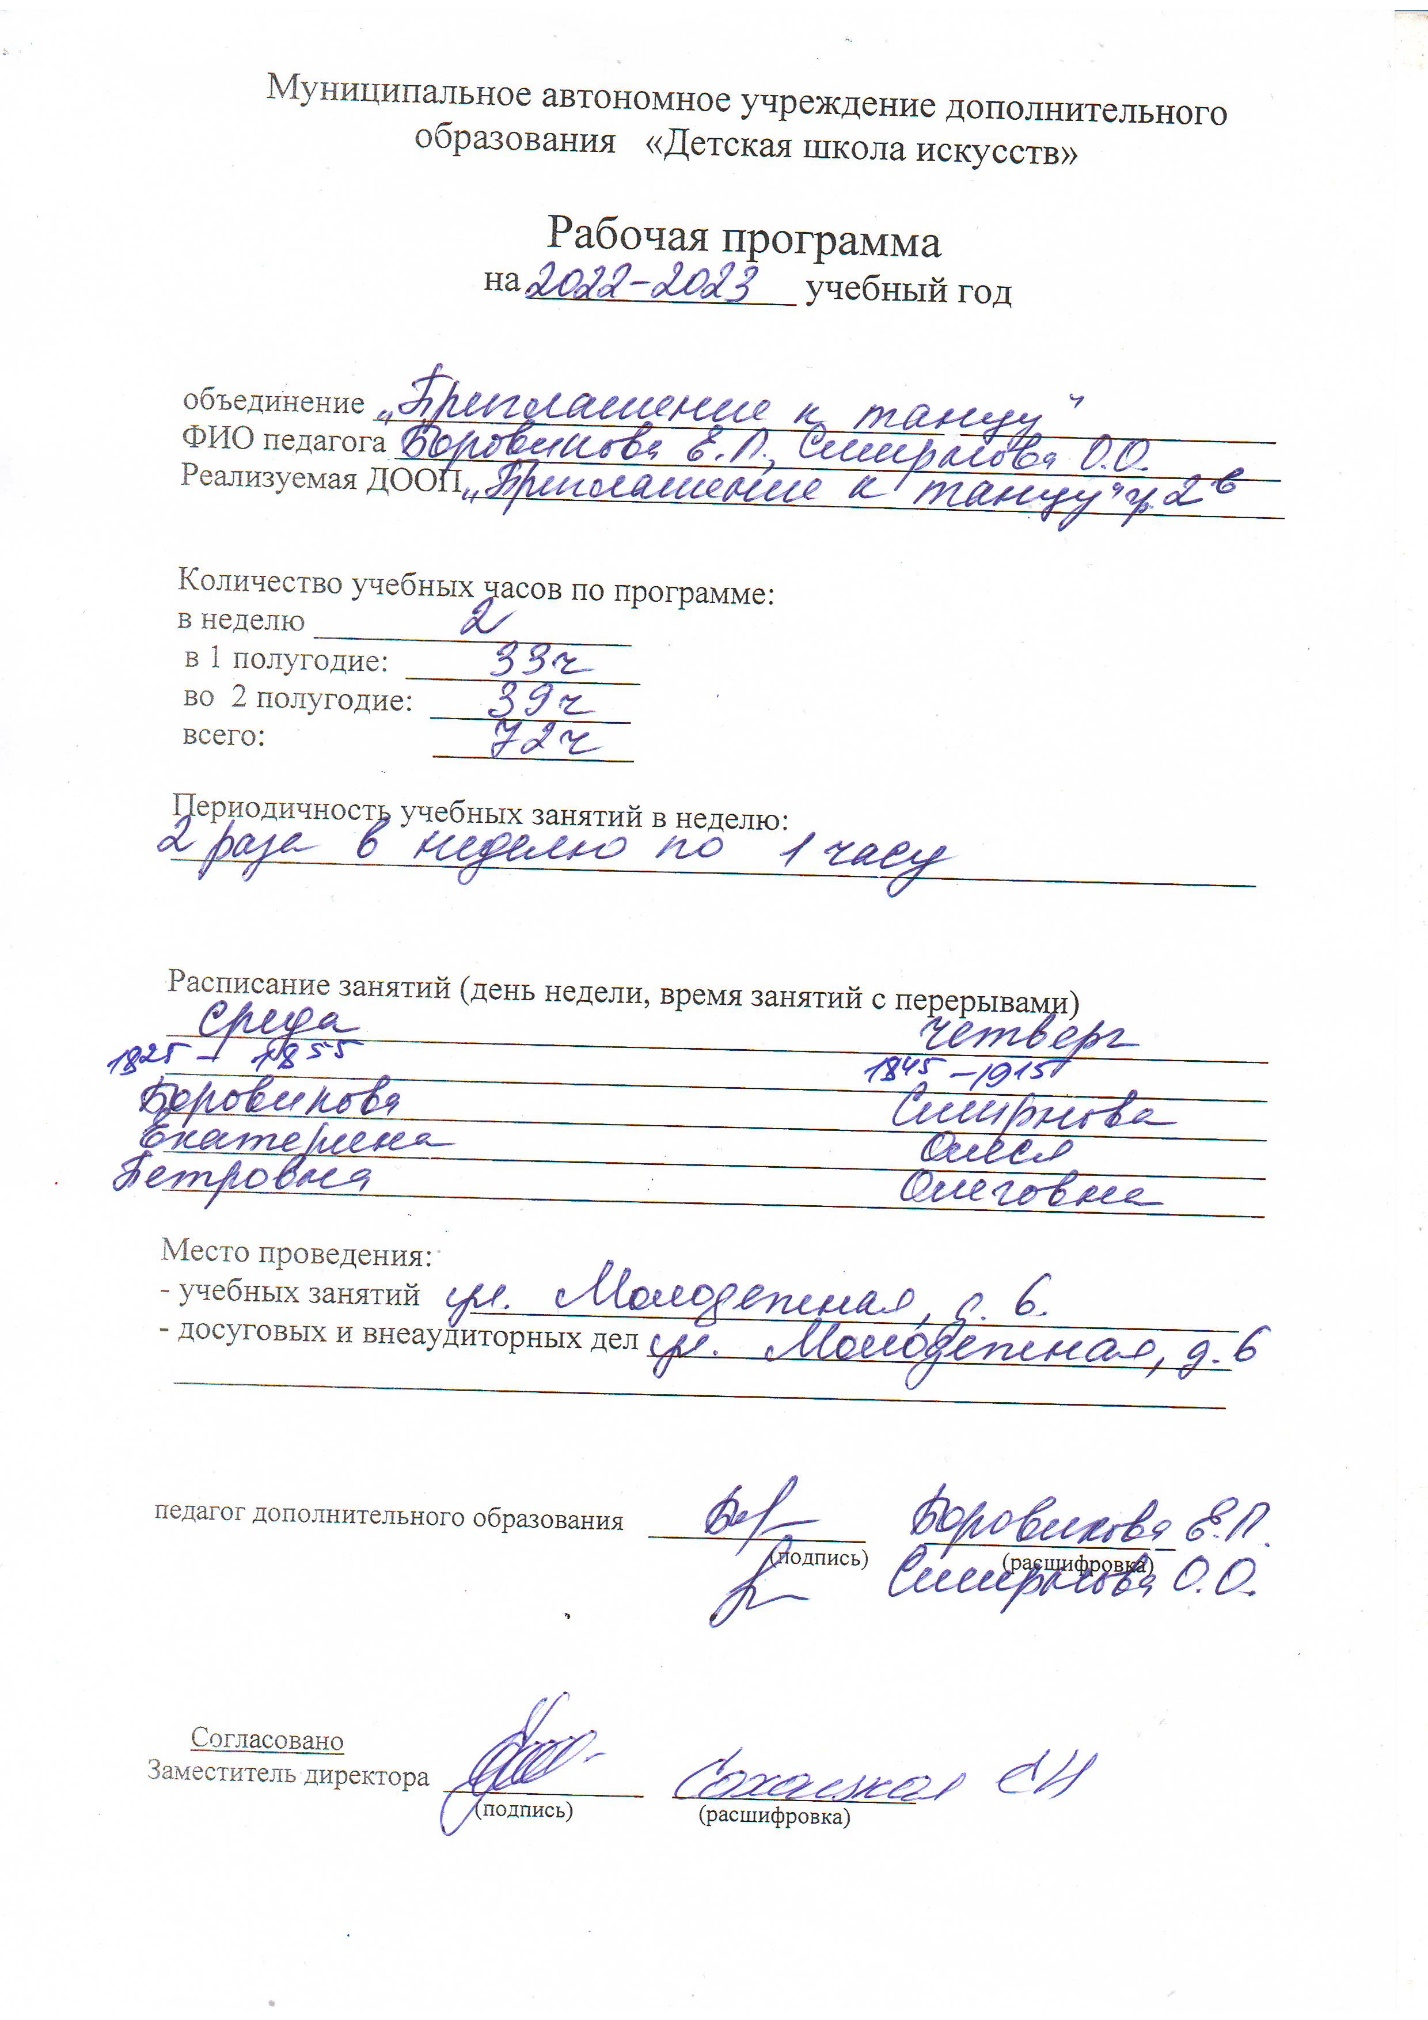 Муниципальное автономное учреждение дополнительного
образования «Детская школа искусств»
Рабочая программа
на 2022-2023 учебный год
объединение „Приглашение к танцу“
ФИО педагога Боровикова Е.П., Смирнова О.О.
Реализуемая ДООП „Приглашение к танцу“ гр. 2в
Количество учебных часов по программе:
в неделю 2
в 1 полугодие: 33ч
во 2 полугодие: 39ч
всего: 72ч
Периодичность учебных занятий в неделю:
2 раза в неделю по 1 часу
Расписание занятий (день недели, время занятий с перерывами)
среда четверг
18 25 - 18 55 18 45 - 19 15
Боровикова Смирнова
Екатерина Олеся
Петровна Олеговна
Место проведения:
- учебных занятий ул. Молодежная, д. 6.
- досуговых и внеаудиторных дел ул. Молодежная, д. 6
педагог дополнительного образования Боровикова Е.П.
(подпись) (расшифровка)
Смирнова О.О.
Согласовано
Заместитель директора
(подпись) (расшифровка)